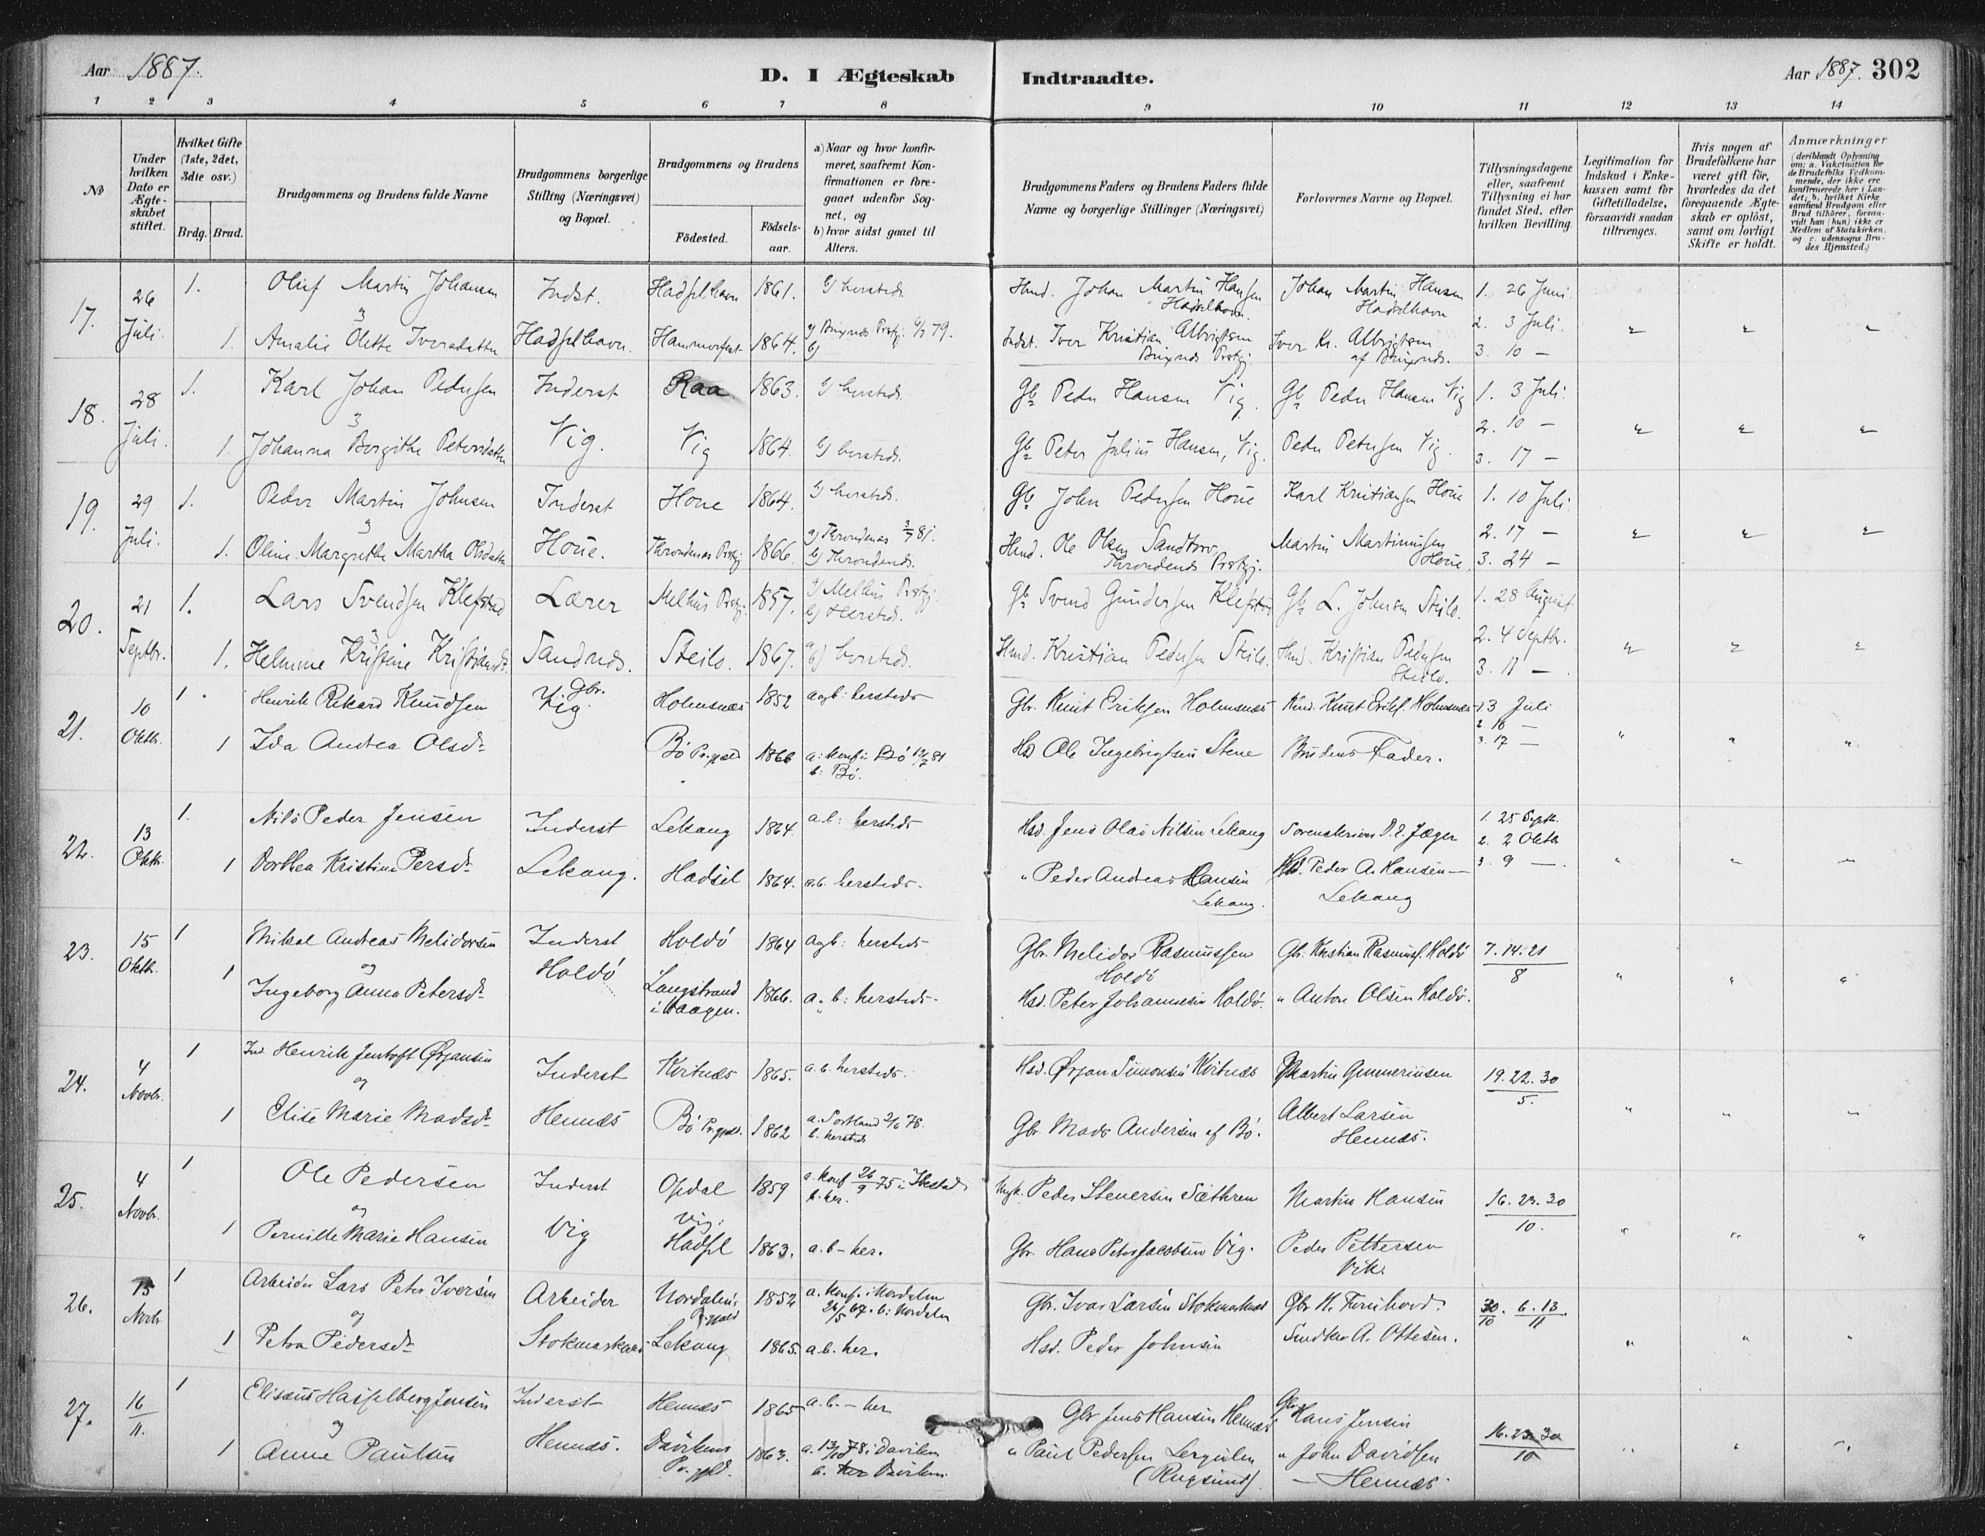 Aar 1887.
D. I Ægteskab
Indtraadte.
Aar 1887. 302
1 2 3 4 5 6 7 8 9 10 11 12 13 14
No
Under hvilken Dato er Ægteskabet stiftet.
Hvilket Gifte (1ste, 2det, 3die osv.)
Brdg. Brud.
Brudgommens og Brudens fulde Navne
Brudgommens borgerlige Stilling (Næringsvei) og Bopæl.
Brudgommens og Brudens
Födested. Födselsaar.
a) Naar og hvor konfirmeret, saafremt Konfirmationen er foregaaet udenfor Sognet, og
b) hvor sidst gaaet til Alters.
Brudgommens Faders og Brudens Faders fulde Navne og borgerlige Stillinger (Næringsvei)
Forlovernes Navne og Bopæl.
Tillysningsdagene eller, saafremt Tillysning ei har fundet Sted, efter hvilken Bevilling.
Legitimation for Indskud i Enkekassen samt for Giftetilladelse, forsaavidt saadan tiltrænges.
Hvis nogen af Brudefolkene har været gift før, hvorledes da det foregaaende Ægteskab er oplöst, samt om lovligt Skifte er holdt.
Anmærkninger
(deriblandt Oplysning om: a. Vakcination for de Brudefolks Vedkommende, der ikke ere konfirmerede her i Landet; b. hvilket Kirkesamfund Brudgom eller Brud tilhörer, forsaavidt han (hun) ikke er Medlem af Statskirken, og c. udensogns Brudes Hjemsted.)
17. 26 Juli. 1. Oluf Martin Johansen Indst. Hadselhavn 1861. b) hersteds. Hmd. Johan Martin Hansen Hadselhavn. Johan Martin Hansen Hadselhavn 1. 26 Juni.
og 2. 3 Juli.
1. Amalie Olette Iversdatter Hadselhavn. Hammerfest 1864. Indst. Iver Kristian Albrigtsen Iver Kr. Albrigtsen 3. 10 —
18. 28 Juli. 1. Karl Johan Pedersen Inderst Raa 1863. b) hersteds. Gb. Peder Hansen Vig. Gb. Peder Hansen Vig 1. 3 Juli.
og 2. 10 —
1. Johanna Bergithe Petersdatter Vig. Vig 1864. b) hersteds. Gb. Peter Julius Hansen, Vig. Peder Petersen Vig. 3. 17 —
19. 29 Juli. 1. Peder Martin Johnsen Inderst Houe 1864. b) hersteds. Gb. John Pedersen Houe Karl Kristiansen Houe 1. 10 Juli.
og 2. 17 —
1. Oline Margrethe Martha Olsdatter Houe. Throndenes Prstgj. 1866. a) Throndenes 3/7 81. b) Throndends. Hmd. Ole Olsen Sandtorv Throndends Prstgj. Martin Martinussen Houe. 3. 24 —
20. 21 Septbr. 1. Lars Svendsen Klefstad Lærer Melhus Prstgj. 1857. a) Melhus Prstgj. b) Hersted. Gb. Svend Gundersen Klefstad Gb. L. Johnsen Steilo. 1. 28 August.
og 2. 4 Septbr.
1. Helmine Kristine Kristiansd. Sandnes. Steilo. 1867. b) hersteds. Hmd. Kristian Pedersen Steilo. Hmd. Kristian Pedersen Steilo. 3. 11 —
21. 10 Oktbr. 1. Henrik Rikard Knudsen Gbr. Vig. Holmsnæs 1852 a og b: hersteds Gbr. Knut Eriksen Holmsnæs Knut Eriks. Holmsnæs 1. 3 Juli
2. 10 —
1 Ida Andrea Olsd. Bø Prgjeld 1866 a: konf i Bø b: Bø. Hsd Ole Ingebrigtsen Stene Brudens Fader. 3. 17 —
22. 13 Oktr. 1. Nils Peder Jensen Inderst Lekang 1864. a. b: hersteds Hsd. Jens Olai Nilsen Lekang D. E. Jæger 1. 25 Septb.
2. 2 Oktb
1 Dorthea Kristine Persd. Lekang. Hadsel 1864. a. b. hersteds. " Peder Andreas Hansen Lekang. Hsd. Peder A. Hansen — Lekang 3. 9 —
23. 15 Oktb. 1 Mikal Andreas Melidorsen Inderst Holdö 1864 a og b: hersteds Gbr. Melidor Rasmussen Holdö Gb. Kristian Rasmuss. Holdö 7. 14. 21 / 8
og
1 Ingeborg Anna Petersd. Holdö Langstrand i Vaagen. 1866. a. b: hersteds. Hsd. Peter Johannesen Holdö. " Anton Olsen Holdö.
24. 4 Novbr. 1 Ind. Henrik Jentoft Ørjansen Inderst Kvitnæs 1865. a. b. hersteds. Hsd. Ørjan Simonsen Kvitnæs Martin 19. 22. 30 / 5.
og
1 Elise Marie Madsd. Hennæs Bö Prgjeld. 1862 a. Sortland b. hersteds Gbr. Mads Andersen af Bö. Albert Larsen Hennæs.
25. 4 Novbr. 1 Ole Pedersen Inderst Opdal 1859 a. konf 26/9 75 i Ibestad b. her. Peder Stenersen Sæthren Martin Hansen 16. 23. 30 / 10.
og
1 Pernille Marie Hansen Vig Vig. Hadsel 1863. a. b — her. Gbr. Hans Peter Jacobsen Vig. Peder Pettersen Vik.
26. 15 Novb. 1 Arbeider Lars Peter Iversen Arbeider Nordalens Prgjeld 1852 a. konf. i Nordalen 26/5 67. b. i Nordalen Gbr. Ivar Larsen Stokmarknæs Gbr. H. 30/10. 6. 13 / 11
og
1 Petra Pedersd. Stokmarknæs Lekang 1865. a. b. her. Hsd. Peder Johnsen A. Ottesen.
27. 16/11. 1 Elisæus Hasselberg Jensen Inderst Hennæs 1865 a. b. — her Gbr Jens Hansen Hennæs Gbr Hans Jensen 16. 23. 30 / 10
og
1 Anne Paulsen Hennæs. Daviken Prgjld. 1863. a. 13/10 78 i Daviken b. her Daviken. " Paul Pedersen (Rugsund). " John Davidsen — Hennæs.